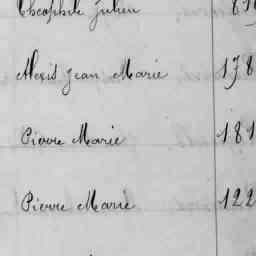 Théophile Julien 81
Alexis Jean Marie 178
Pierre Marie 181
Pierre Marie 122